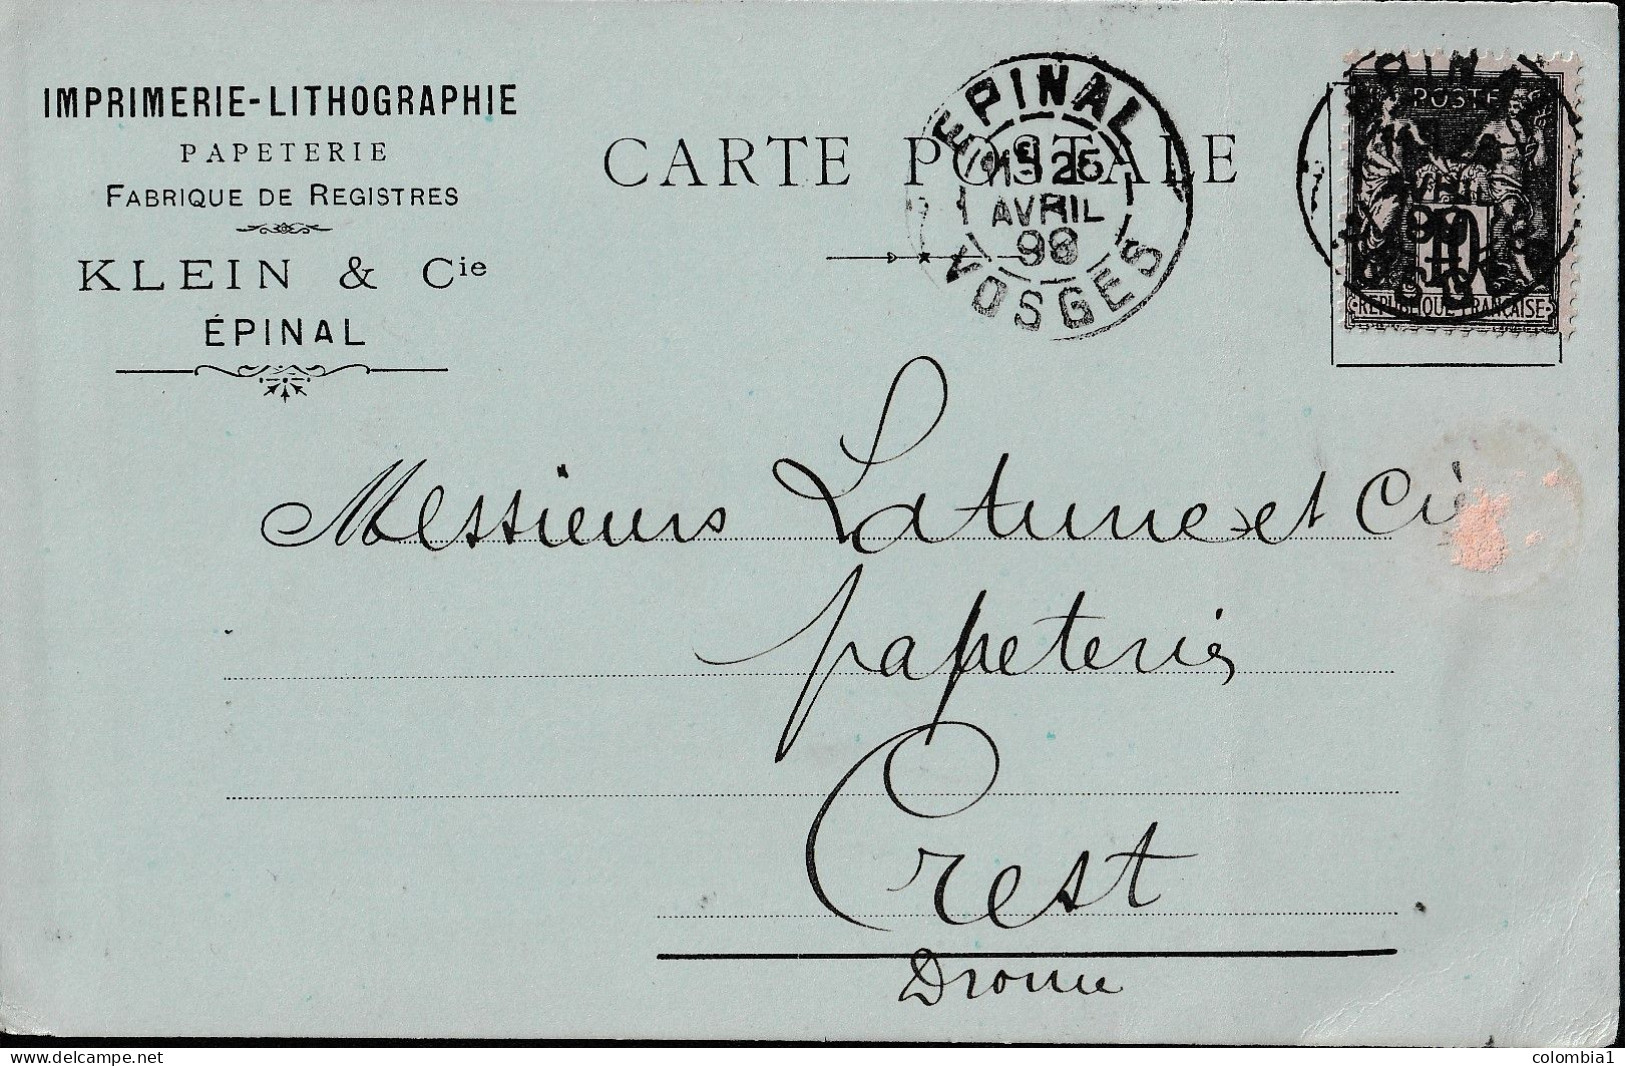 IMPRIMERIE-LITHOGRAPHIE
PAPETERIE
FABRIQUE DE REGISTRES
KLEIN & Cie
ÉPINAL
CARTE POSTALE
EPINAL
25
AVRIL
VOSGES
POSTE
REPUBLIQUE FRANCAISE
Messieurs Latune et Cie
papeterie
Crest
Drome
delcampe.net
colombia1